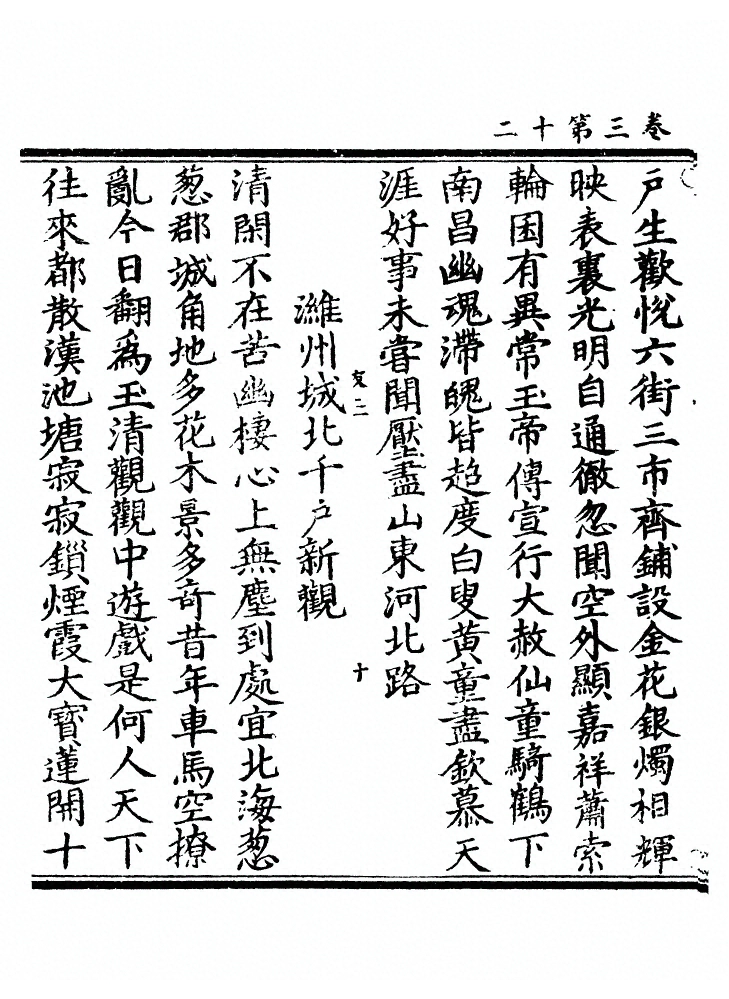 卷三第十二
戶生歡悅六街三市齊鋪設金花銀燭相輝
映表裏光明自通徹忽聞空外顯嘉祥蕭索
輪囷有異常玉帝傳宣行大赦仙童騎鶴下
南昌幽魂滯魄皆超度白叟黃童盡欽慕天
涯好事未嘗聞壓盡山東河北路
友二
十
濰州城北千戶新觀
清閑不在苦幽棲心上無塵到處宜北海葱
葱郡城角地多花木景多奇昔年車馬空撩
亂今日翻爲玉清觀觀中遊戲是何人天下
往來都散漢池塘寂寂鎖煙霞大寶蓮開十